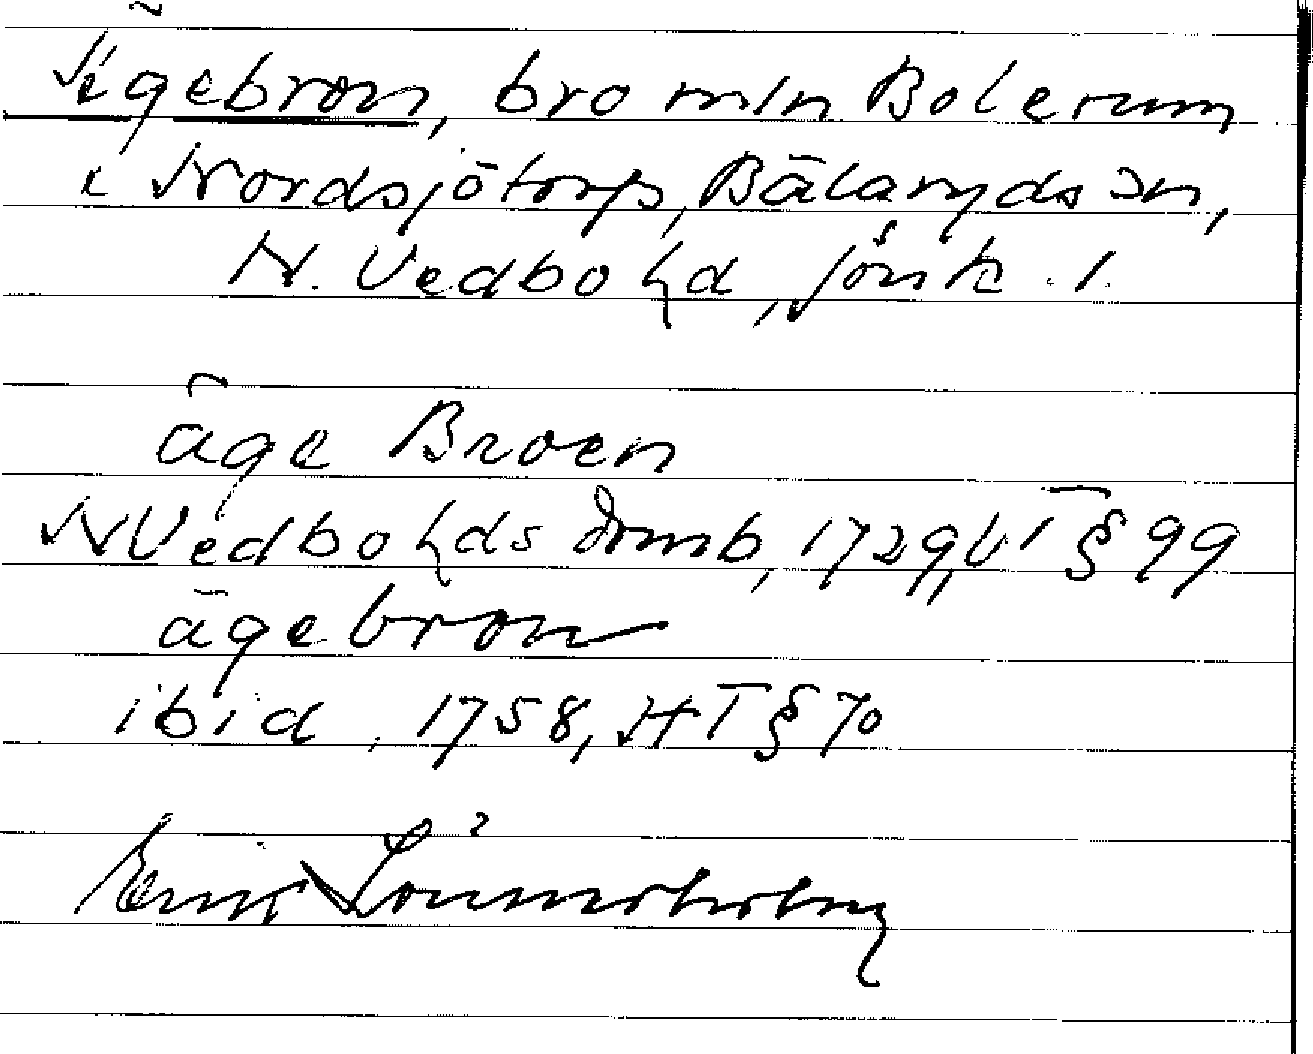 Ägebron, bro mln Bolerum
i Nordsjötorp, Bälaryds sn,
N. Vedbo hd, Jönk. l.
äge Broen
N Vedbo hds domb, 1729, VT § 99
ägebron
ibid, 1758, HT § 70